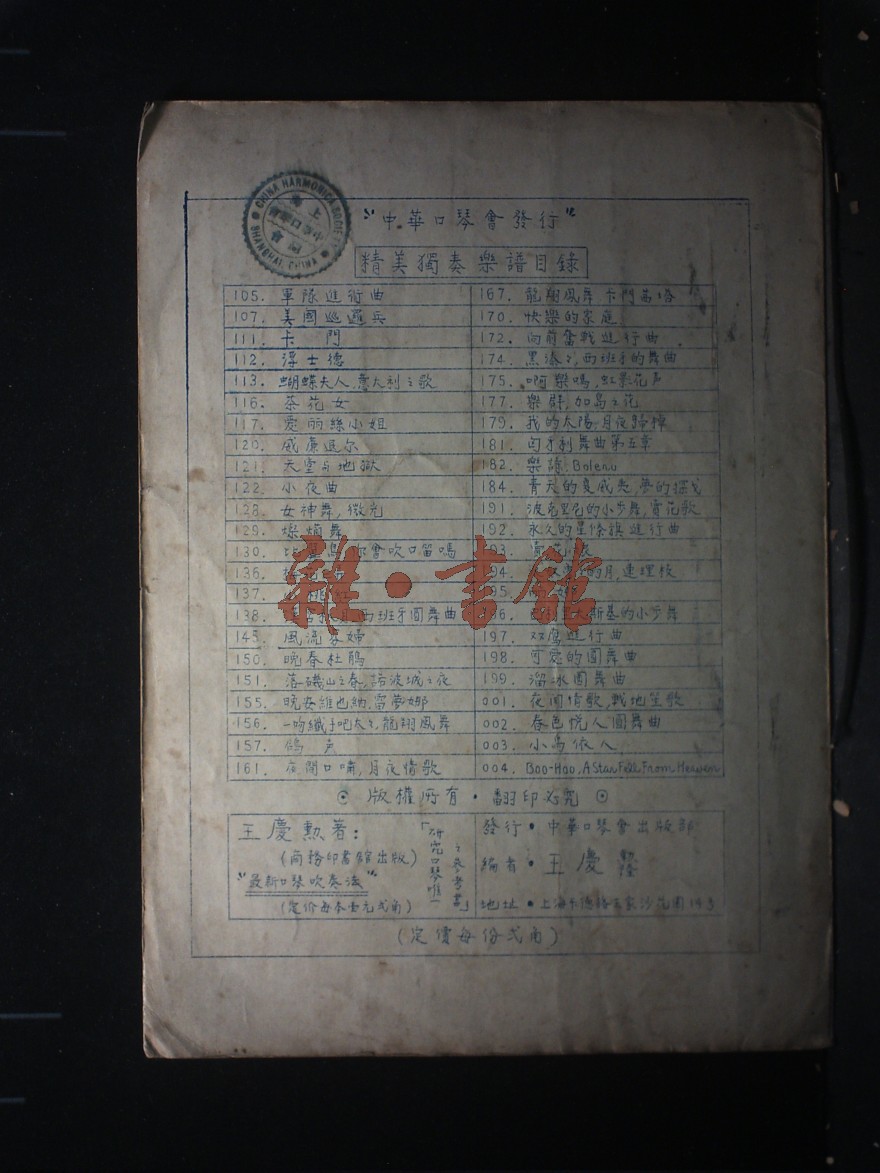 CHINA HARMONICA SOCIETY
SHANGHAI, CHINA
上海
中華口琴會
"中華口琴會發行"
精美獨奏樂譜目錄
105. 軍隊進行曲
107. 美國巡邏兵
111. 卡門
112. 浮士德
113. 蝴蝶夫人, 意大利之歌
116. 茶花女
117. 愛丽絲小姐
120. 威廉退尔
121. 天堂与地獄
122. 小夜曲
128. 女神舞, 微光
129. 燦爛舞
130. 会吹口笛嗎
136.
137.
138. 西班牙圓舞曲
145. 風流寡婦
150. 晚春杜鵑
151. 落磯山之春, 城之夜
155. 晚安維也納, 雷夢娜
156. 一吻纖手吧太太, 龍翔凤舞
157. 鴿声
161. 夜間口嘯, 月夜情歌
167. 龍翔凤舞 卡門
170. 快樂的家庭
172. 向前奮戰進行曲
174. 西班牙的舞曲
175. 啊 樂嗎, 虹影花声
177. 樂群, 加島之花
179. 我的太陽, 月夜歸棹
181. 匈牙利舞曲第五章
182. Bolero
184. 青天的夏威夷, 夢的探戈
191. 的小步舞, 賣花歌
192. 永久的星條旗進行曲
193.
194. 的月, 連理枝
195.
196. 斯基的小步舞
197. 双鹰進行曲
198. 可愛的圓舞曲
199. 溜冰圓舞曲
001. 夜间情歌, 戰地笙歌
002. 春色悅人圓舞曲
003. 小鳥依人
004. Boo-Hoo, A Star Fell From Heaven
⊙ 版權所有・翻印必究 ⊙
王慶勲著:
(商務印書館出版)
"最新口琴吹奏法"
(定价每本壹元弍角)
「研究口琴唯一之參考書」
發行・中華口琴會出版部
編者・王慶勲 隆
地址・上海卡德路王家沙花園143
(定價每份弍角)
雜・書館